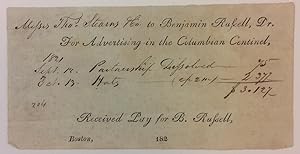 Messrs Thos. Stearns & Co to Benjamin Ruſſell, Dr.
For Advertising in the Columbian Centinel,
1821
Sept. 12. Partnership Dissolved 75
Oct. 13. Hats 2.37½
$3.12½
Received Pay for B. Ruſſell,
Boston, 182